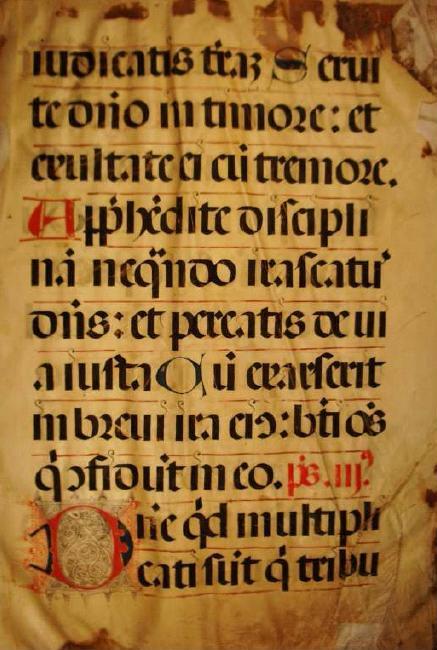 iudicatis trãz Serui
te dño in timore: et
exultate ei cũ tremore.
Apphẽdite discipli
nã neq̃ndo irascatur
dñs: et pereatis de ui
a iusta Cũ exarserit
in breui ira eiꝰ: bti oẽs
q̃ ↄfidũt in eo. ps. iij.
Dñe q̃d multipli
cati sũt q̃ tribu